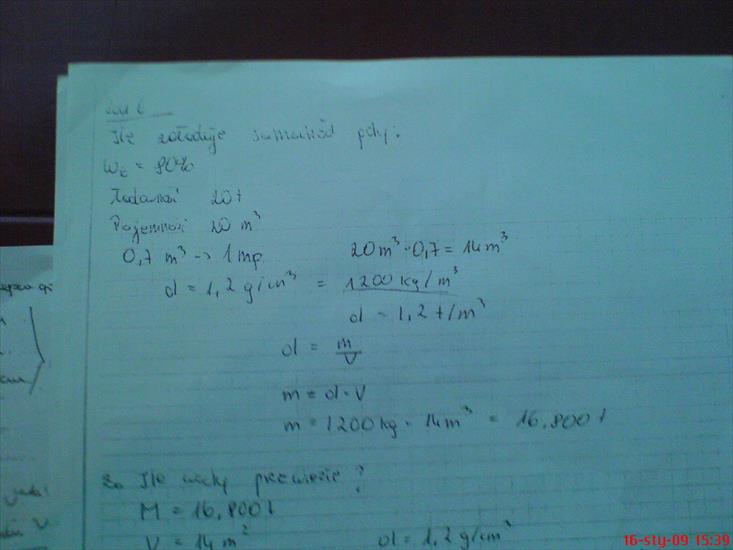 Ile załaduje samochód gdy:
Wt = 80%
Ładowność 20t
Pojemność 20 m³
0,7 m³ -> 1mp 20m³·0,7 = 14m³
d = 1,2 g/cm³ = 1200 kg/m³
d = 1,2 t/m³
d = m/V
m = d·V
m = 1200kg · 14m³ = 16.800t
Ile wody przewiezie?
M = 16,800t
V = 14m² d = 1,2 g/cm³
16-sty-09 15:39